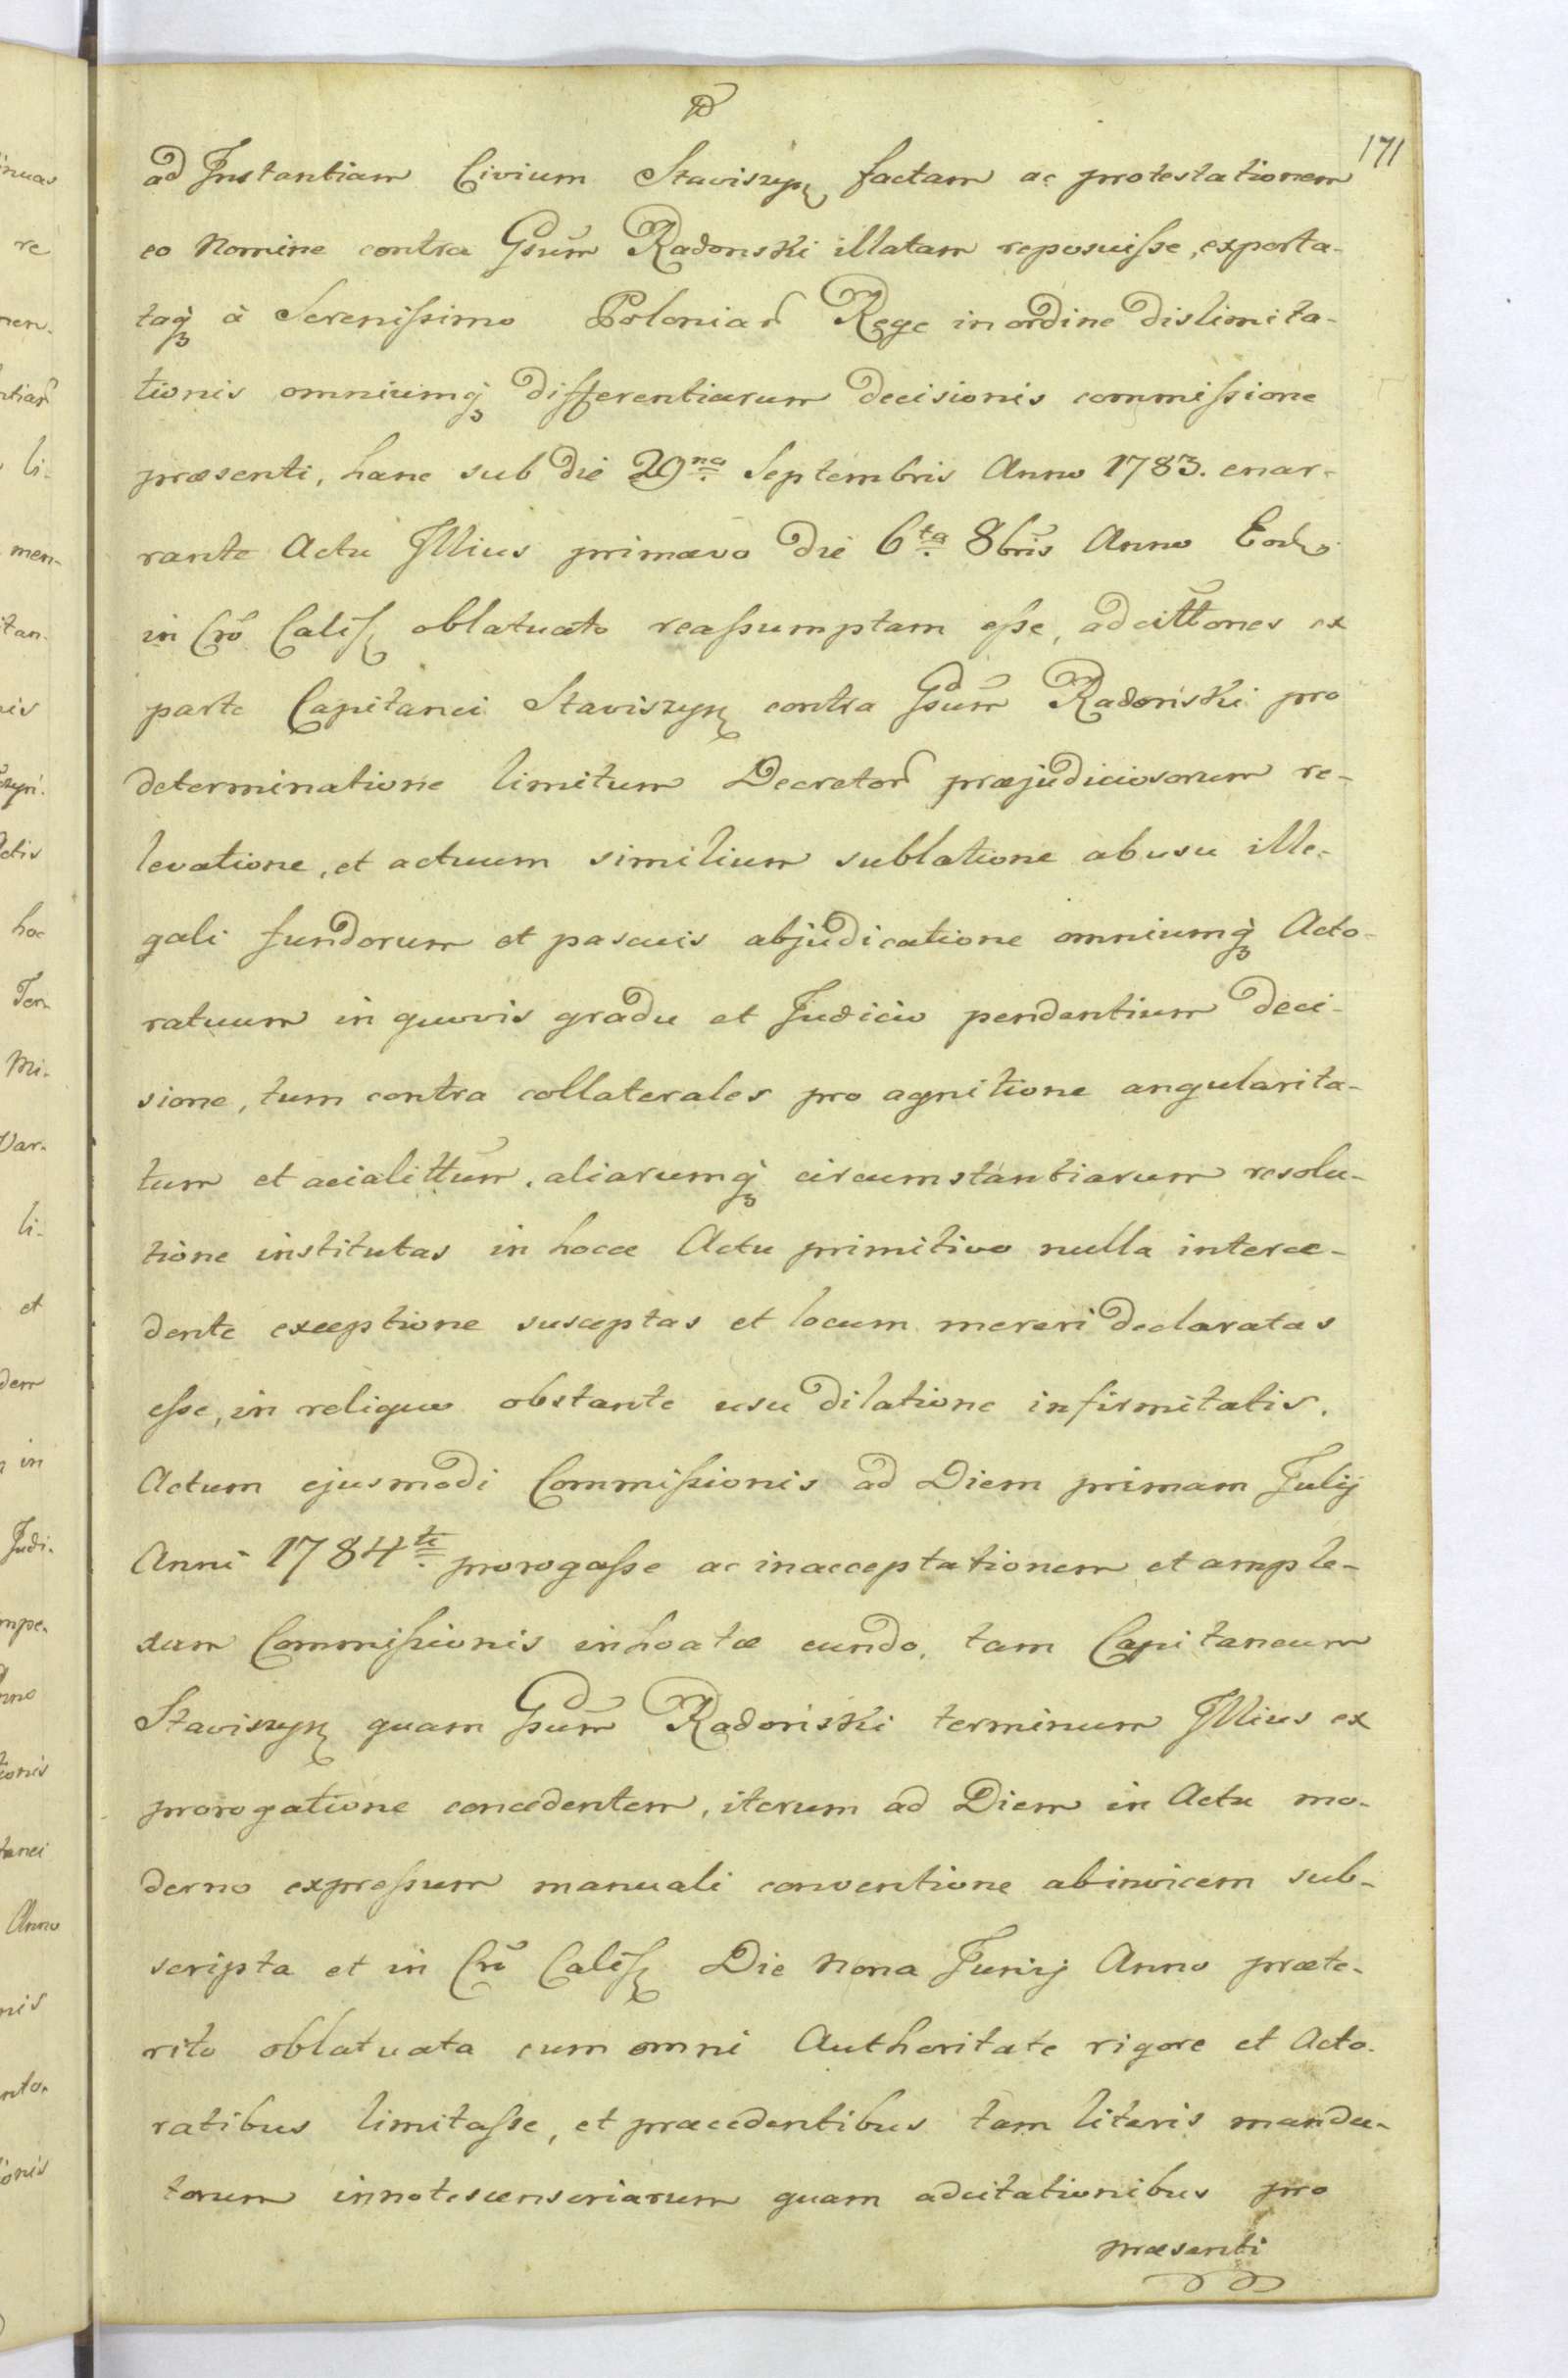 171
ad Instantiam Civium Staviszyn factam ac protestationem
eo Nomine contra Gsum Radonski illatam reposuiſse, exporta-
taq à Sereniſsimo Poloniar Rege in ordine dislimita-
tionis omniumq differentiarum decisionis commiſsione
præsenti, hanc sub die 29na Septembris Anno 1783. enar-
rante Actu Illius primævo die 6ta 8bris Anno Eodo
in Cro Caliſ oblatuato reaſsumptam eſse, adcittones ex
parte Capitanei Staviszyn contra Gsum Radonski pro
determinatione limitum Decretor præjudiciosorum re-
levatione, et actuum similium sublatione abusu ille-
gali fundorum et pascuis abjudicatione omniumq Acto-
ratuum in quovis gradu et Judicio pendentium deci-
sione, tum contra collaterales pro agnitione angularita-
tum et acialittum, aliarumq circumstantiarum resolu-
tione institutas in hocce Actu primitivo nulla interce-
dente exceptione susceptas et locum mereri declaratas
eſse, in reliquo obstante usu dilatione infirmitatis.
Actum ejusmodi Commiſsionis ad Diem primam Julij
Anni 1784ti prorogaſse ac in acceptationem etample-
xum Commiſsionis inhoatæ eundo, tam Capitaneum
Staviszyn quam Gsum Radonski terminum Illius ex
prorogatione concedentem, iterum ad Diem in Actu mo-
derno expreſsum manuali conventione abinvicem sub-
scripta et in Cro Caliſ Die Nona Junij Anno præte-
rito oblatuata cum omni Authoritate rigore et Acto-
ratibus limitaſse, et præcedentibus tam literis manda-
torum innotescensoriarum quam adcitationibus pro
præsenti